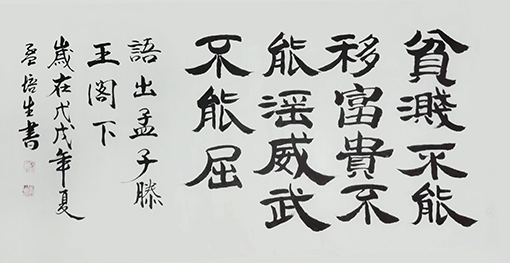 貧濺不能
移富貴不
能滛威武
不能屈
語出孟子滕
王阁下
嵗在戊戌年夏
培生書